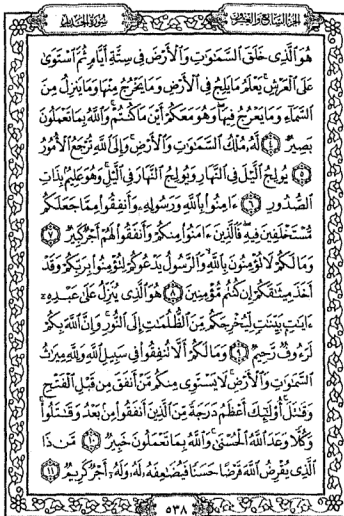 الجزء السابع والعشرون سورة الحديد
هُوَ ٱلَّذِى خَلَقَ ٱلسَّمَٰوَٰتِ وَٱلْأَرْضَ فِى سِتَّةِ أَيَّامٍ ثُمَّ ٱسْتَوَىٰ
عَلَى ٱلْعَرْشِ يَعْلَمُ مَا يَلِجُ فِى ٱلْأَرْضِ وَمَا يَخْرُجُ مِنْهَا وَمَا يَنزِلُ مِنَ
ٱلسَّمَآءِ وَمَا يَعْرُجُ فِيهَا وَهُوَ مَعَكُمْ أَيْنَ مَا كُنتُمْ وَٱللَّهُ بِمَا تَعْمَلُونَ
بَصِيرٌ ٤ لَّهُۥ مُلْكُ ٱلسَّمَٰوَٰتِ وَٱلْأَرْضِ وَإِلَى ٱللَّهِ تُرْجَعُ ٱلْأُمُورُ
٥ يُولِجُ ٱلَّيْلَ فِى ٱلنَّهَارِ وَيُولِجُ ٱلنَّهَارَ فِى ٱلَّيْلِ وَهُوَ عَلِيمٌۢ بِذَاتِ
ٱلصُّدُورِ ٦ ءَامِنُوا۟ بِٱللَّهِ وَرَسُولِهِۦ وَأَنفِقُوا۟ مِمَّا جَعَلَكُم
مُّسْتَخْلَفِينَ فِيهِ فَٱلَّذِينَ ءَامَنُوا۟ مِنكُمْ وَأَنفَقُوا۟ لَهُمْ أَجْرٌ كَبِيرٌ ٧
وَمَا لَكُمْ لَا تُؤْمِنُونَ بِٱللَّهِ وَٱلرَّسُولُ يَدْعُوكُمْ لِتُؤْمِنُوا۟ بِرَبِّكُمْ وَقَدْ
أَخَذَ مِيثَٰقَكُمْ إِن كُنتُم مُّؤْمِنِينَ ٨ هُوَ ٱلَّذِى يُنَزِّلُ عَلَىٰ عَبْدِهِۦٓ
ءَايَٰتٍۭ بَيِّنَٰتٍ لِّيُخْرِجَكُم مِّنَ ٱلظُّلُمَٰتِ إِلَى ٱلنُّورِ وَإِنَّ ٱللَّهَ بِكُمْ
لَرَءُوفٌ رَّحِيمٌ ٩ وَمَا لَكُمْ أَلَّا تُنفِقُوا۟ فِى سَبِيلِ ٱللَّهِ وَلِلَّهِ مِيرَٰثُ
ٱلسَّمَٰوَٰتِ وَٱلْأَرْضِ لَا يَسْتَوِى مِنكُم مَّنْ أَنفَقَ مِن قَبْلِ ٱلْفَتْحِ
وَقَٰتَلَ أُو۟لَٰٓئِكَ أَعْظَمُ دَرَجَةً مِّنَ ٱلَّذِينَ أَنفَقُوا۟ مِنۢ بَعْدُ وَقَٰتَلُوا۟
وَكُلًّا وَعَدَ ٱللَّهُ ٱلْحُسْنَىٰ وَٱللَّهُ بِمَا تَعْمَلُونَ خَبِيرٌ ١٠ مَّن ذَا
ٱلَّذِى يُقْرِضُ ٱللَّهَ قَرْضًا حَسَنًا فَيُضَٰعِفَهُۥ لَهُۥ وَلَهُۥٓ أَجْرٌ كَرِيمٌ ١١
٥٣٨